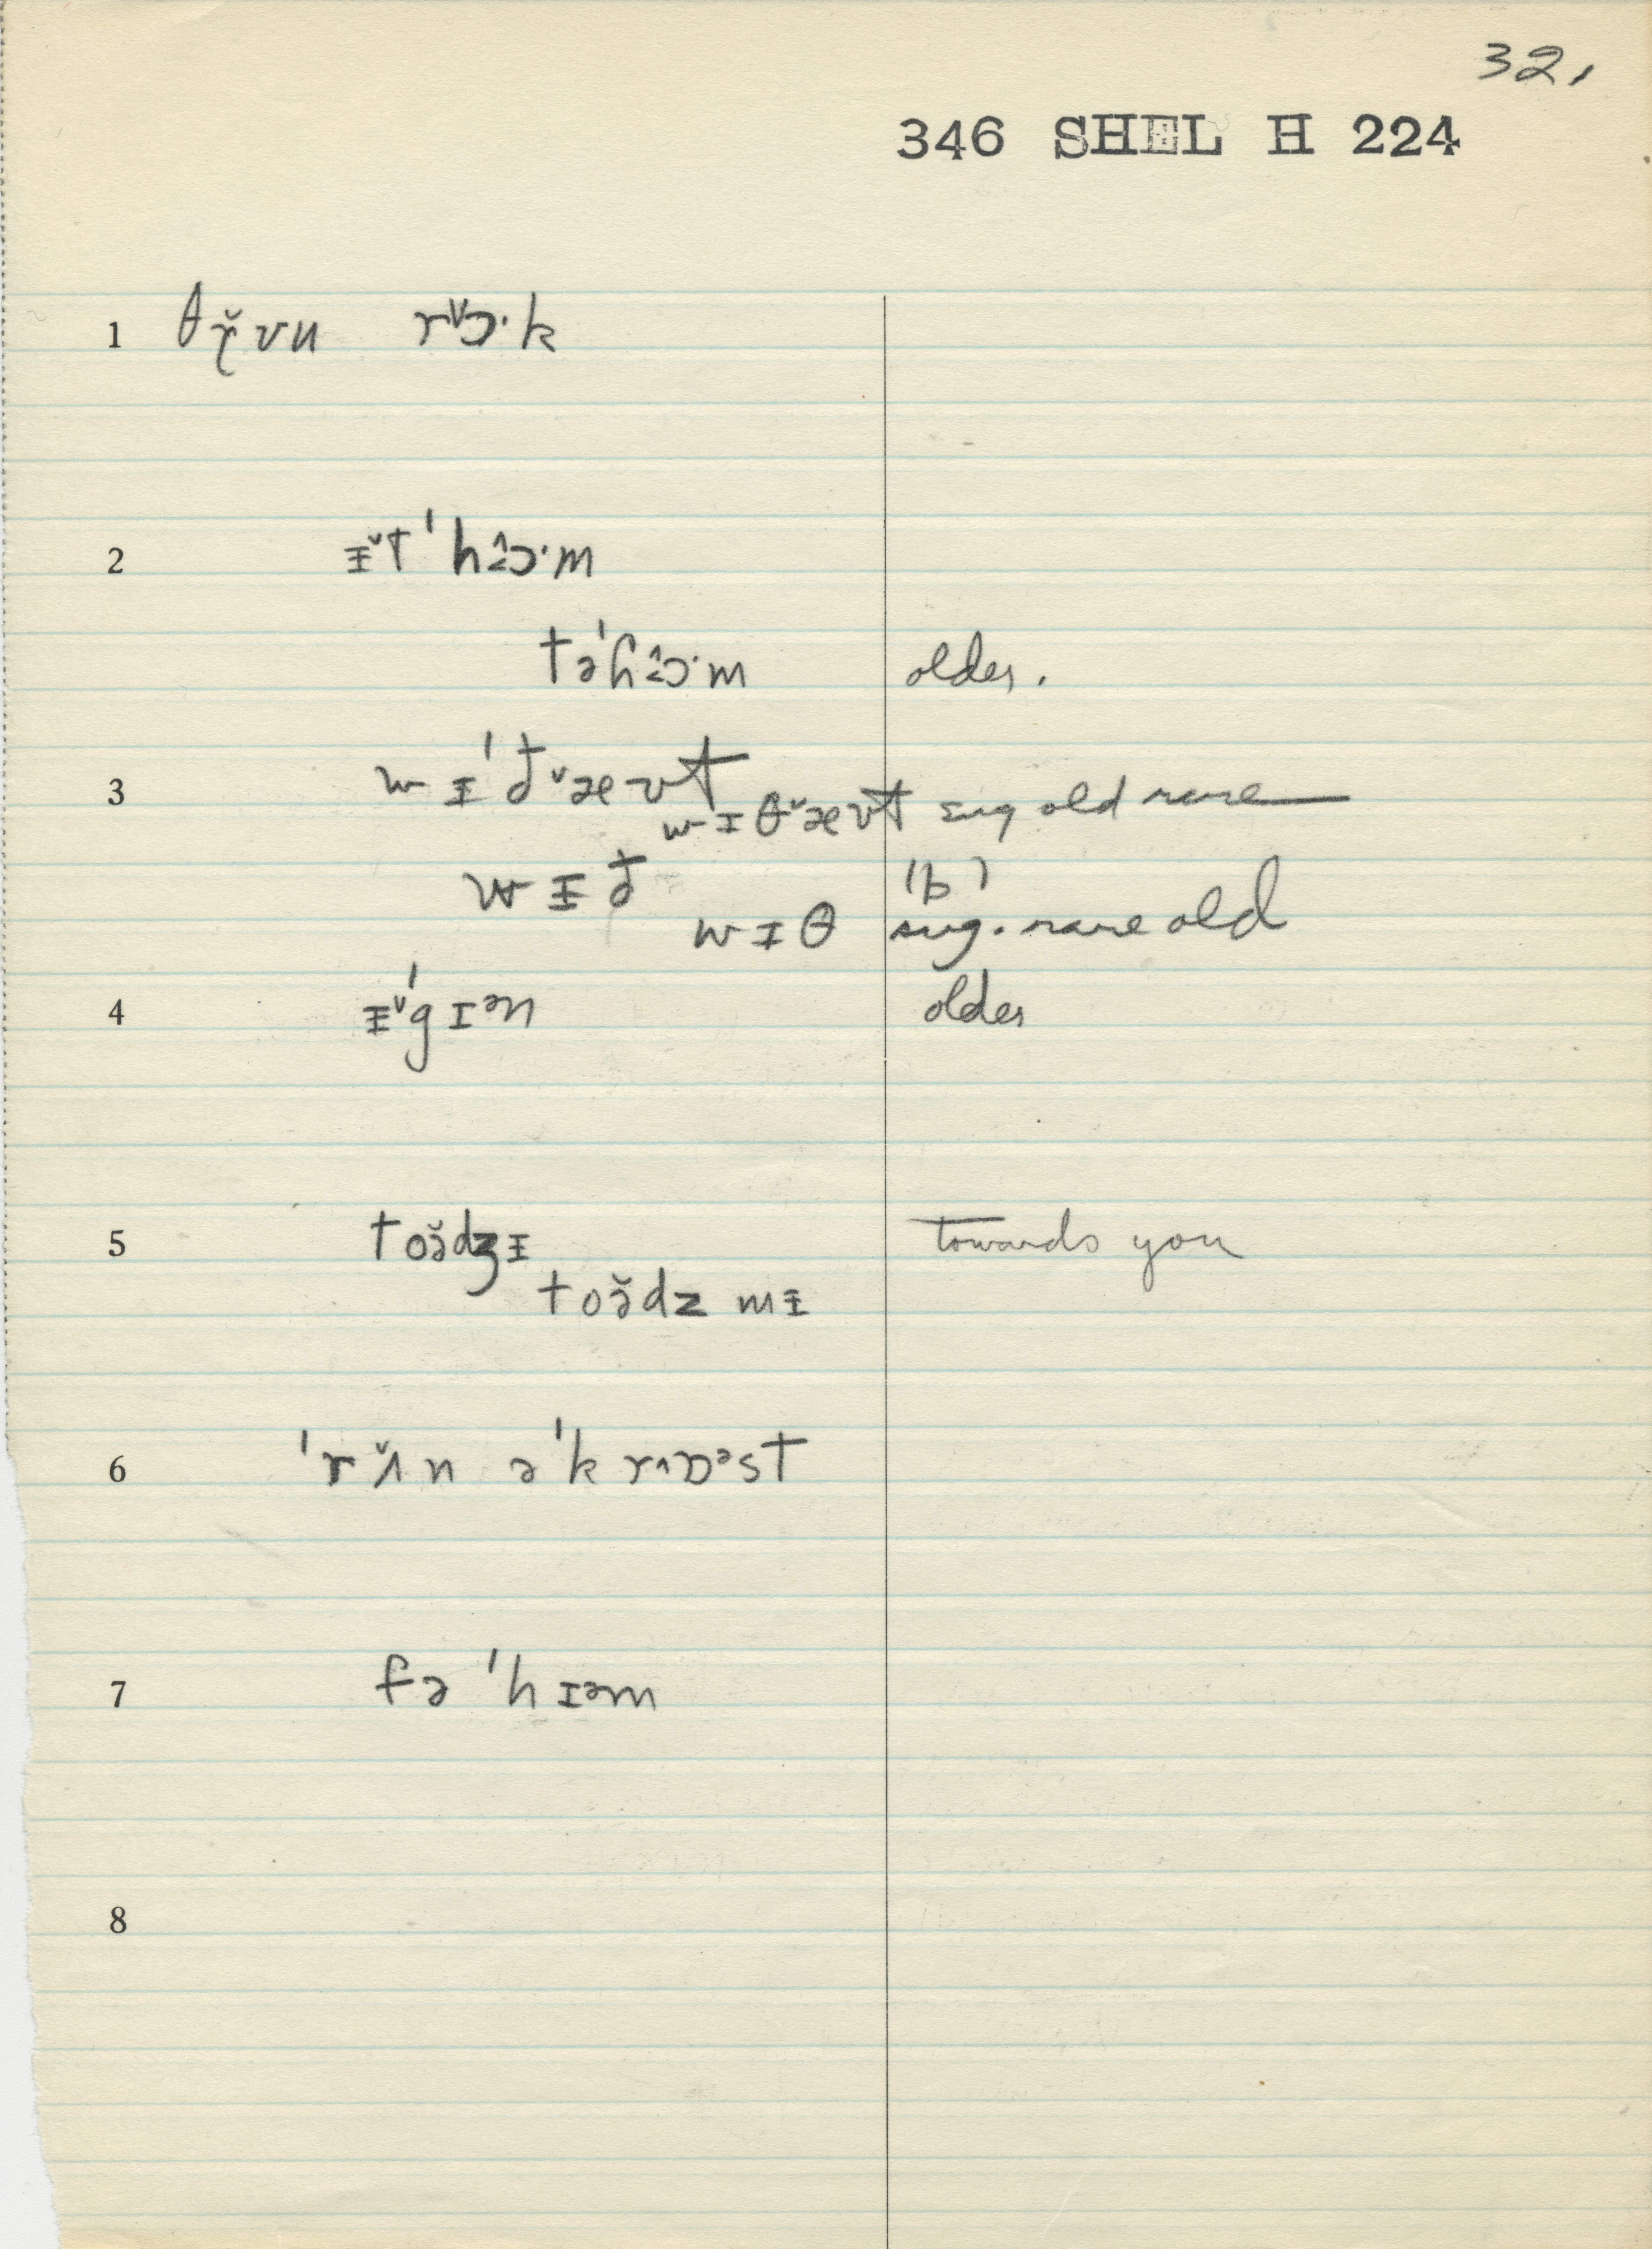 32,
346 SHEL H 224
1 θɤ̆ vu rˇɔ·k
2 ᵻˇt ˈhɔ̂·m
təˈhɔ̂·m older.
3 wɪˈðˇævt
wɪθˇævt sug old rare
wᵻð (b)
wɪθ sug. rare old
4 ᵻˇˈgɪᵊn older
5 toə̆dʒᵻ towards you
toə̆dz mᵻ
6 ˈrʌ̆n əˈkr^ɒᵊst
7 fə ˈhɪəm
8